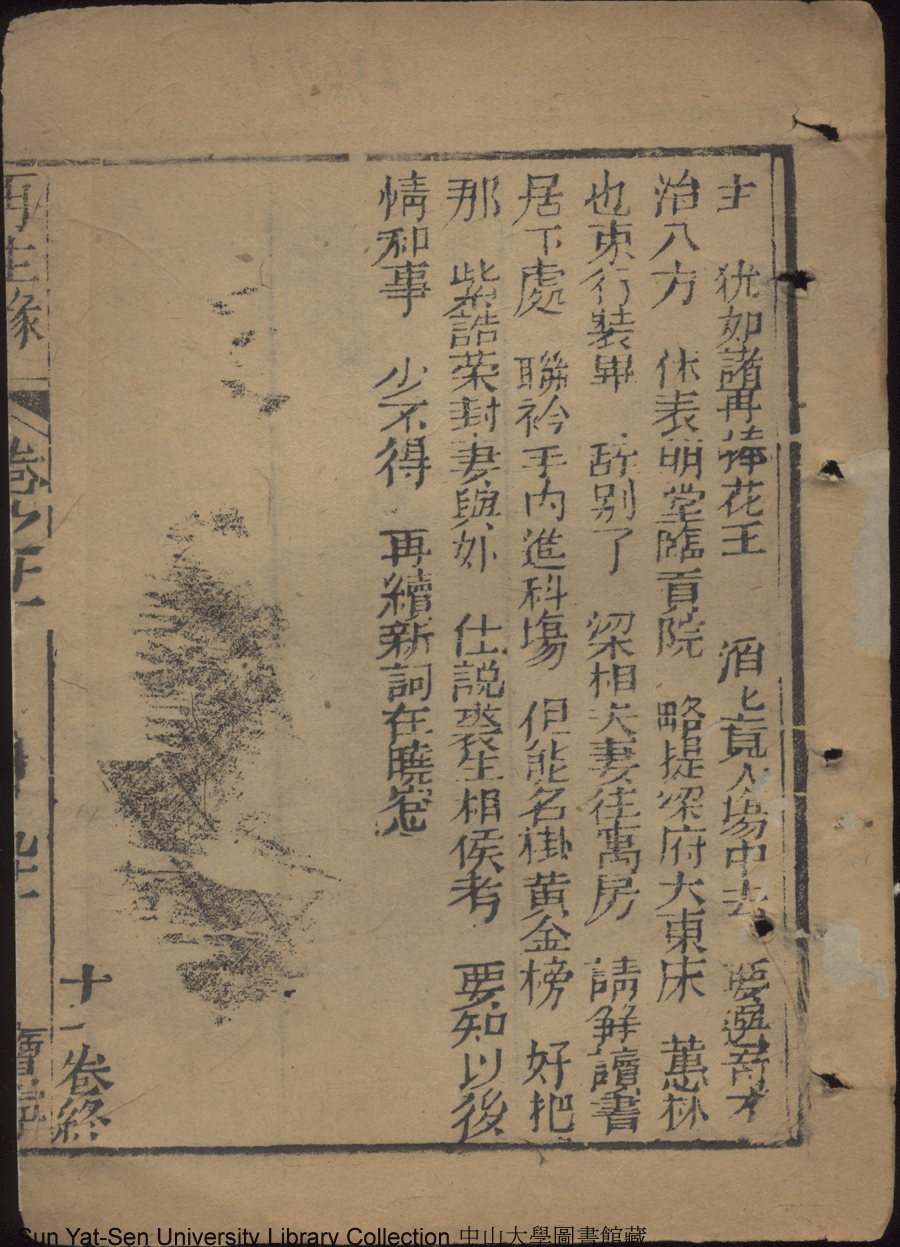 主 犹如諸再捧花王 酒比竟入場中去 要選奇才
治八方 休表明堂臨貢院 略提梁府大東床 蕙林
也束行裝畢 辞别了 梁相夫妻往寓房 請觧讀書
居下處 聯衿手内進科塲 但能名掛黄金榜 好把
那 紫誥荣封妻與妳 仕説裘生相侯考 要知以後
情和事 少不得 再續新詞在曉窓
十一卷終
再生緣 卷
Sun Yat-Sen University Library Collection 中山大學圖書館藏